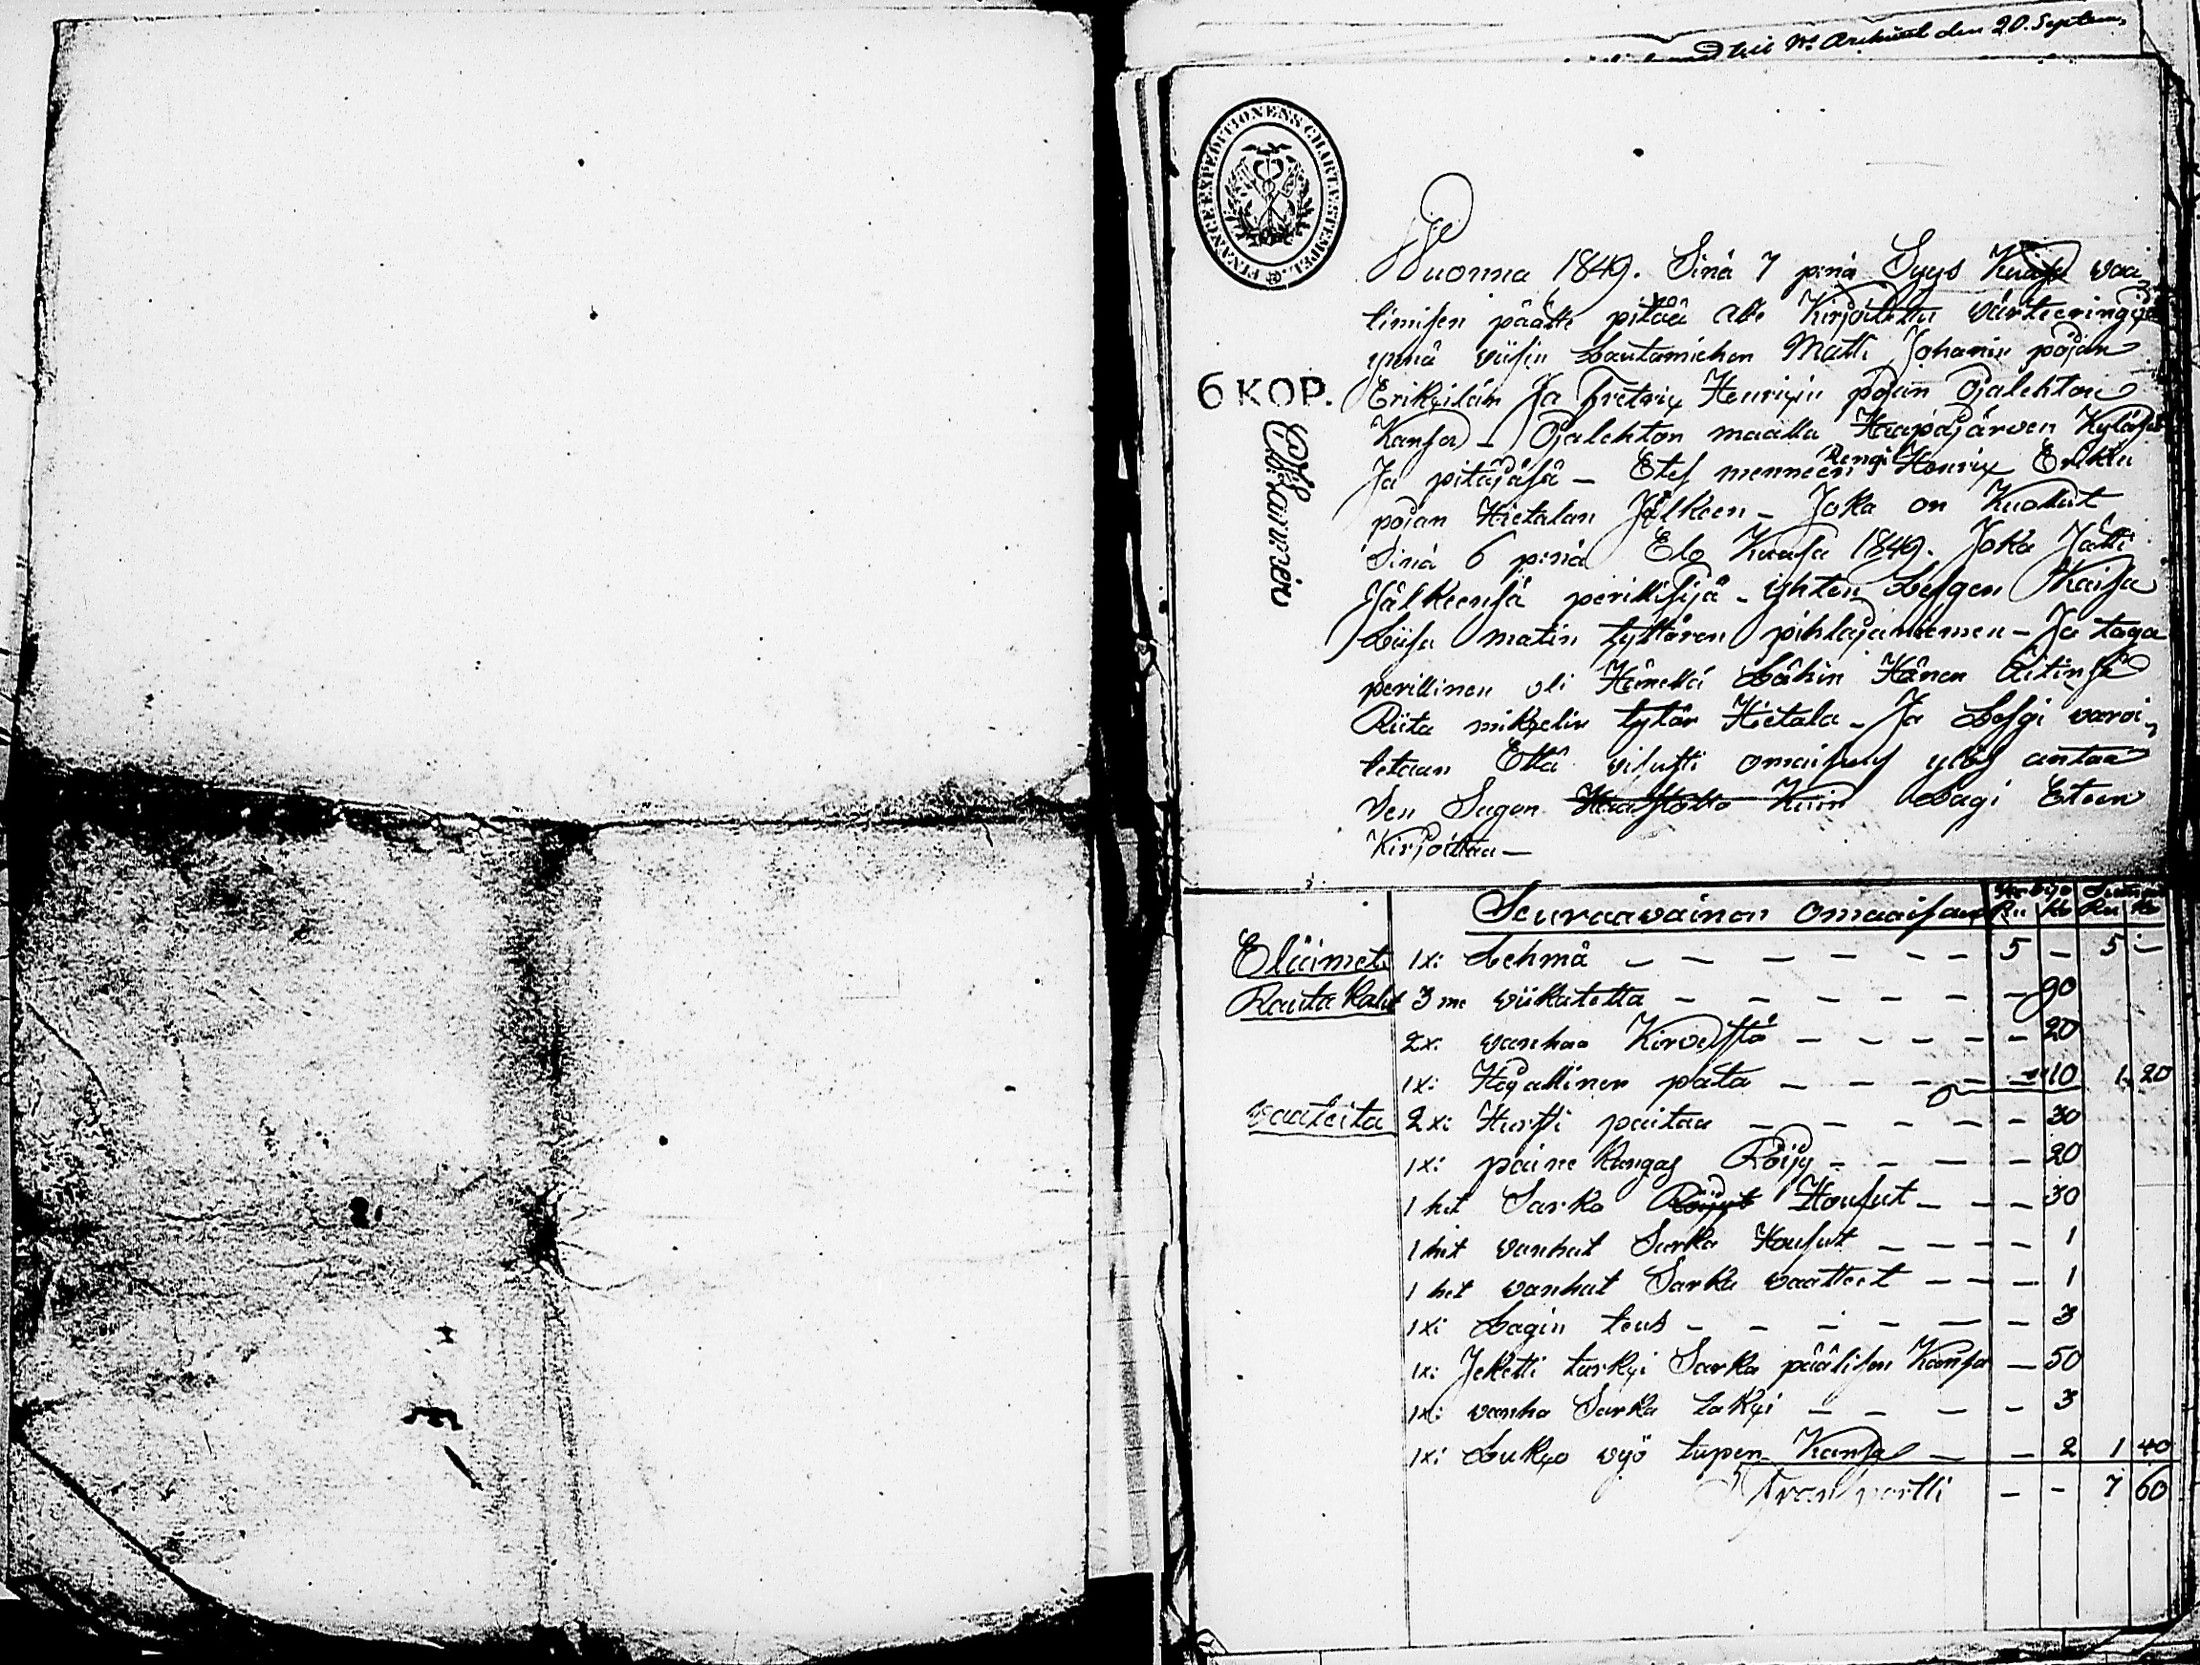 till Wr Arehivet den 20. Septem,
FINANCE EXPEDITIONENS CHARTÆ STEMPEL.
6 KOP.
Wuonna 1849. Sinä 7 p:nä Syys Kuusa waa
limisen päätte pitää alle Kirjoitettu värteeringiä
ynnä Lautamiehen Matti Johanin pojan
Erikäilän Ja Fretrix Henrixin pojan Ojalehton
Kansa - Ojalehton maalla Haapajärwen Kyläsä
Ja pitäjäsä - Etes menneen Rengi Henrix Erikin
pojan Hietalan Jälkeen - Joka on Kuollut
Sinä 6 p:nä Elo Kuusa 1849. Joka Jätti
Jälkeensä perillisijä - ychten Lesgen Kaisa
Liisa Matin tyttären pihlajaniemen - Ja taga
perillinen oli Hänellä Lähin Hänen Äitinsä
Riita mikkelin tytär Hietala - Ja Lesgi waroi,
tetaan Että visusti omaisus ylös antaa
Sen Sugan Kuin Lagi Eteen
Kirjoittaa -
Seuraawainen omaaisus Ru Ko Ru Ko
Eläimet. 1x: Lehmä - - - - - - - 5 - 5 -
Rauta Kalut 3 me wiikatetta - - - - - - - 90
2x: wanhaa Kirvestä - - - - - - 20
1x: Hijallinen pata - - - - - - 10 1, 20
waateita 2x: Hursti paitaa - - - - - - 30
1x: paine Kangas Röijy - - - - 20
1 het Sarka Röijyt Housut - - - 30
1 het wanhat Sarka Housut - - - - 1
1 het wanhat Sarka waatteet - - - 1
1x: Lagin teus - - - - - - - 3
1x: Jeketti turkki Sarka päälisen Kansa - 50
1x: wanha Sarka Lakki - - - - 3
1x: Lukko wyö tupen Kansa - - 2 1 40
Transportti - - 7 60